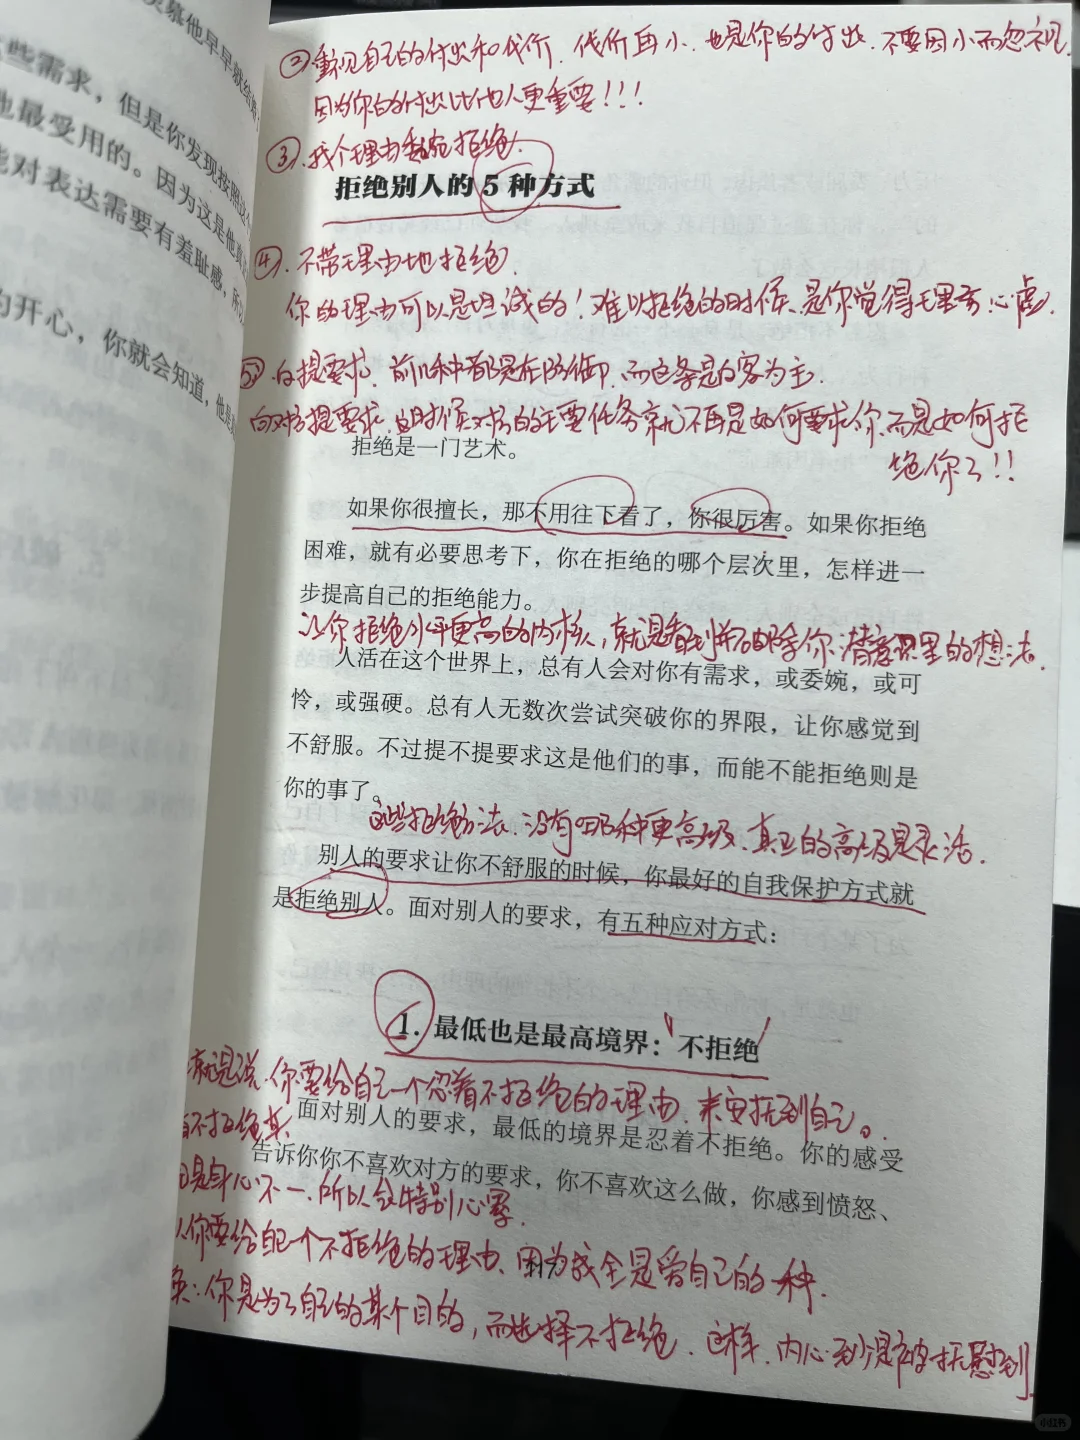 慕他早早就结婚
些需求，但是你发现按照这个
他最受用的。因为这是他真
能对表达需要有羞耻感，所以
的开心，你就会知道，他是
②重视自己的付出和代价，代价再小，也是你的付出，不要因小而忽视，
因为你的付出比他人更重要！！！
③.找个理由委婉拒绝.
拒绝别人的5种方式
④.不带理由地拒绝.
你的理由可以是坦诚的！难以拒绝的时候，是你觉得理亏，心虚.
⑤.提要求，前几种都是在防御，而这条是反客为主.
向对方提要求，这时候对方的主要任务就不再是如何要求你，而是如何拒
绝你了！！
拒绝是一门艺术。
如果你很擅长，那不用往下看了，你很厉害。如果你拒绝
困难，就有必要思考下，你在拒绝的哪个层次里，怎样进一
步提高自己的拒绝能力。
让你拒绝水平更高的内核，就是看到并去除你潜意识里的想法.
人活在这个世界上，总有人会对你有需求，或委婉，或可
怜，或强硬。总有人无数次尝试突破你的界限，让你感觉到
不舒服。不过提不提要求这是他们的事，而能不能拒绝则是
你的事了。
这些拒绝方法，没有哪种更高级，真正的高级是灵活.
别人的要求让你不舒服的时候，你最好的自我保护方式就
是拒绝别人。面对别人的要求，有五种应对方式：
1. 最低也是最高境界：不拒绝
就是说，你要给自己一个忍着不拒绝的理由，来安抚到自己。
不拒绝其
面对别人的要求，最低的境界是忍着不拒绝。你的感受
告诉你你不喜欢对方的要求，你不喜欢这么做，你感到愤怒、
是身心不一，所以会特别心累.
你要给自己一个不拒绝的理由，因为成全是爱自己的一种.
你是为了自己的某个目的，而选择不拒绝，这样，内心到是被抚慰到
小红书